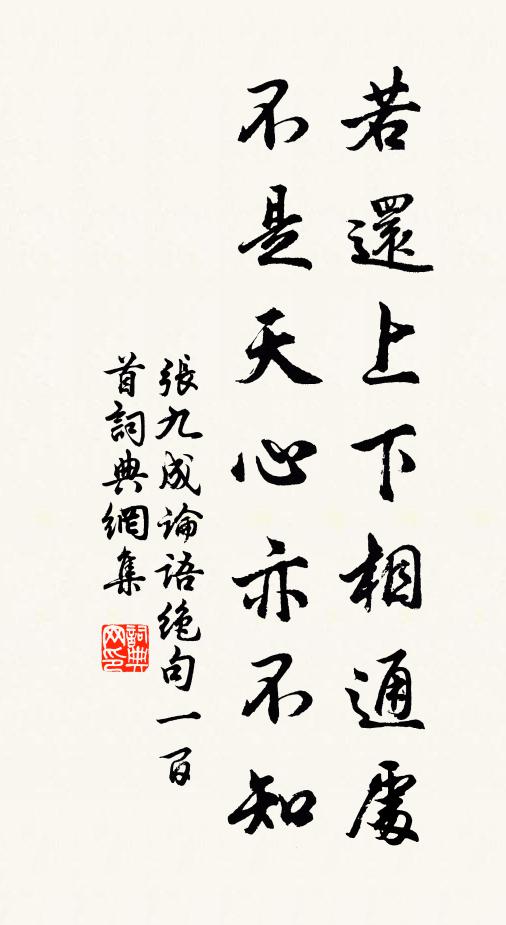 若還上下相通處
不是天心亦不知
張九成論語絕句一百
首詞典網集
詞典
网印